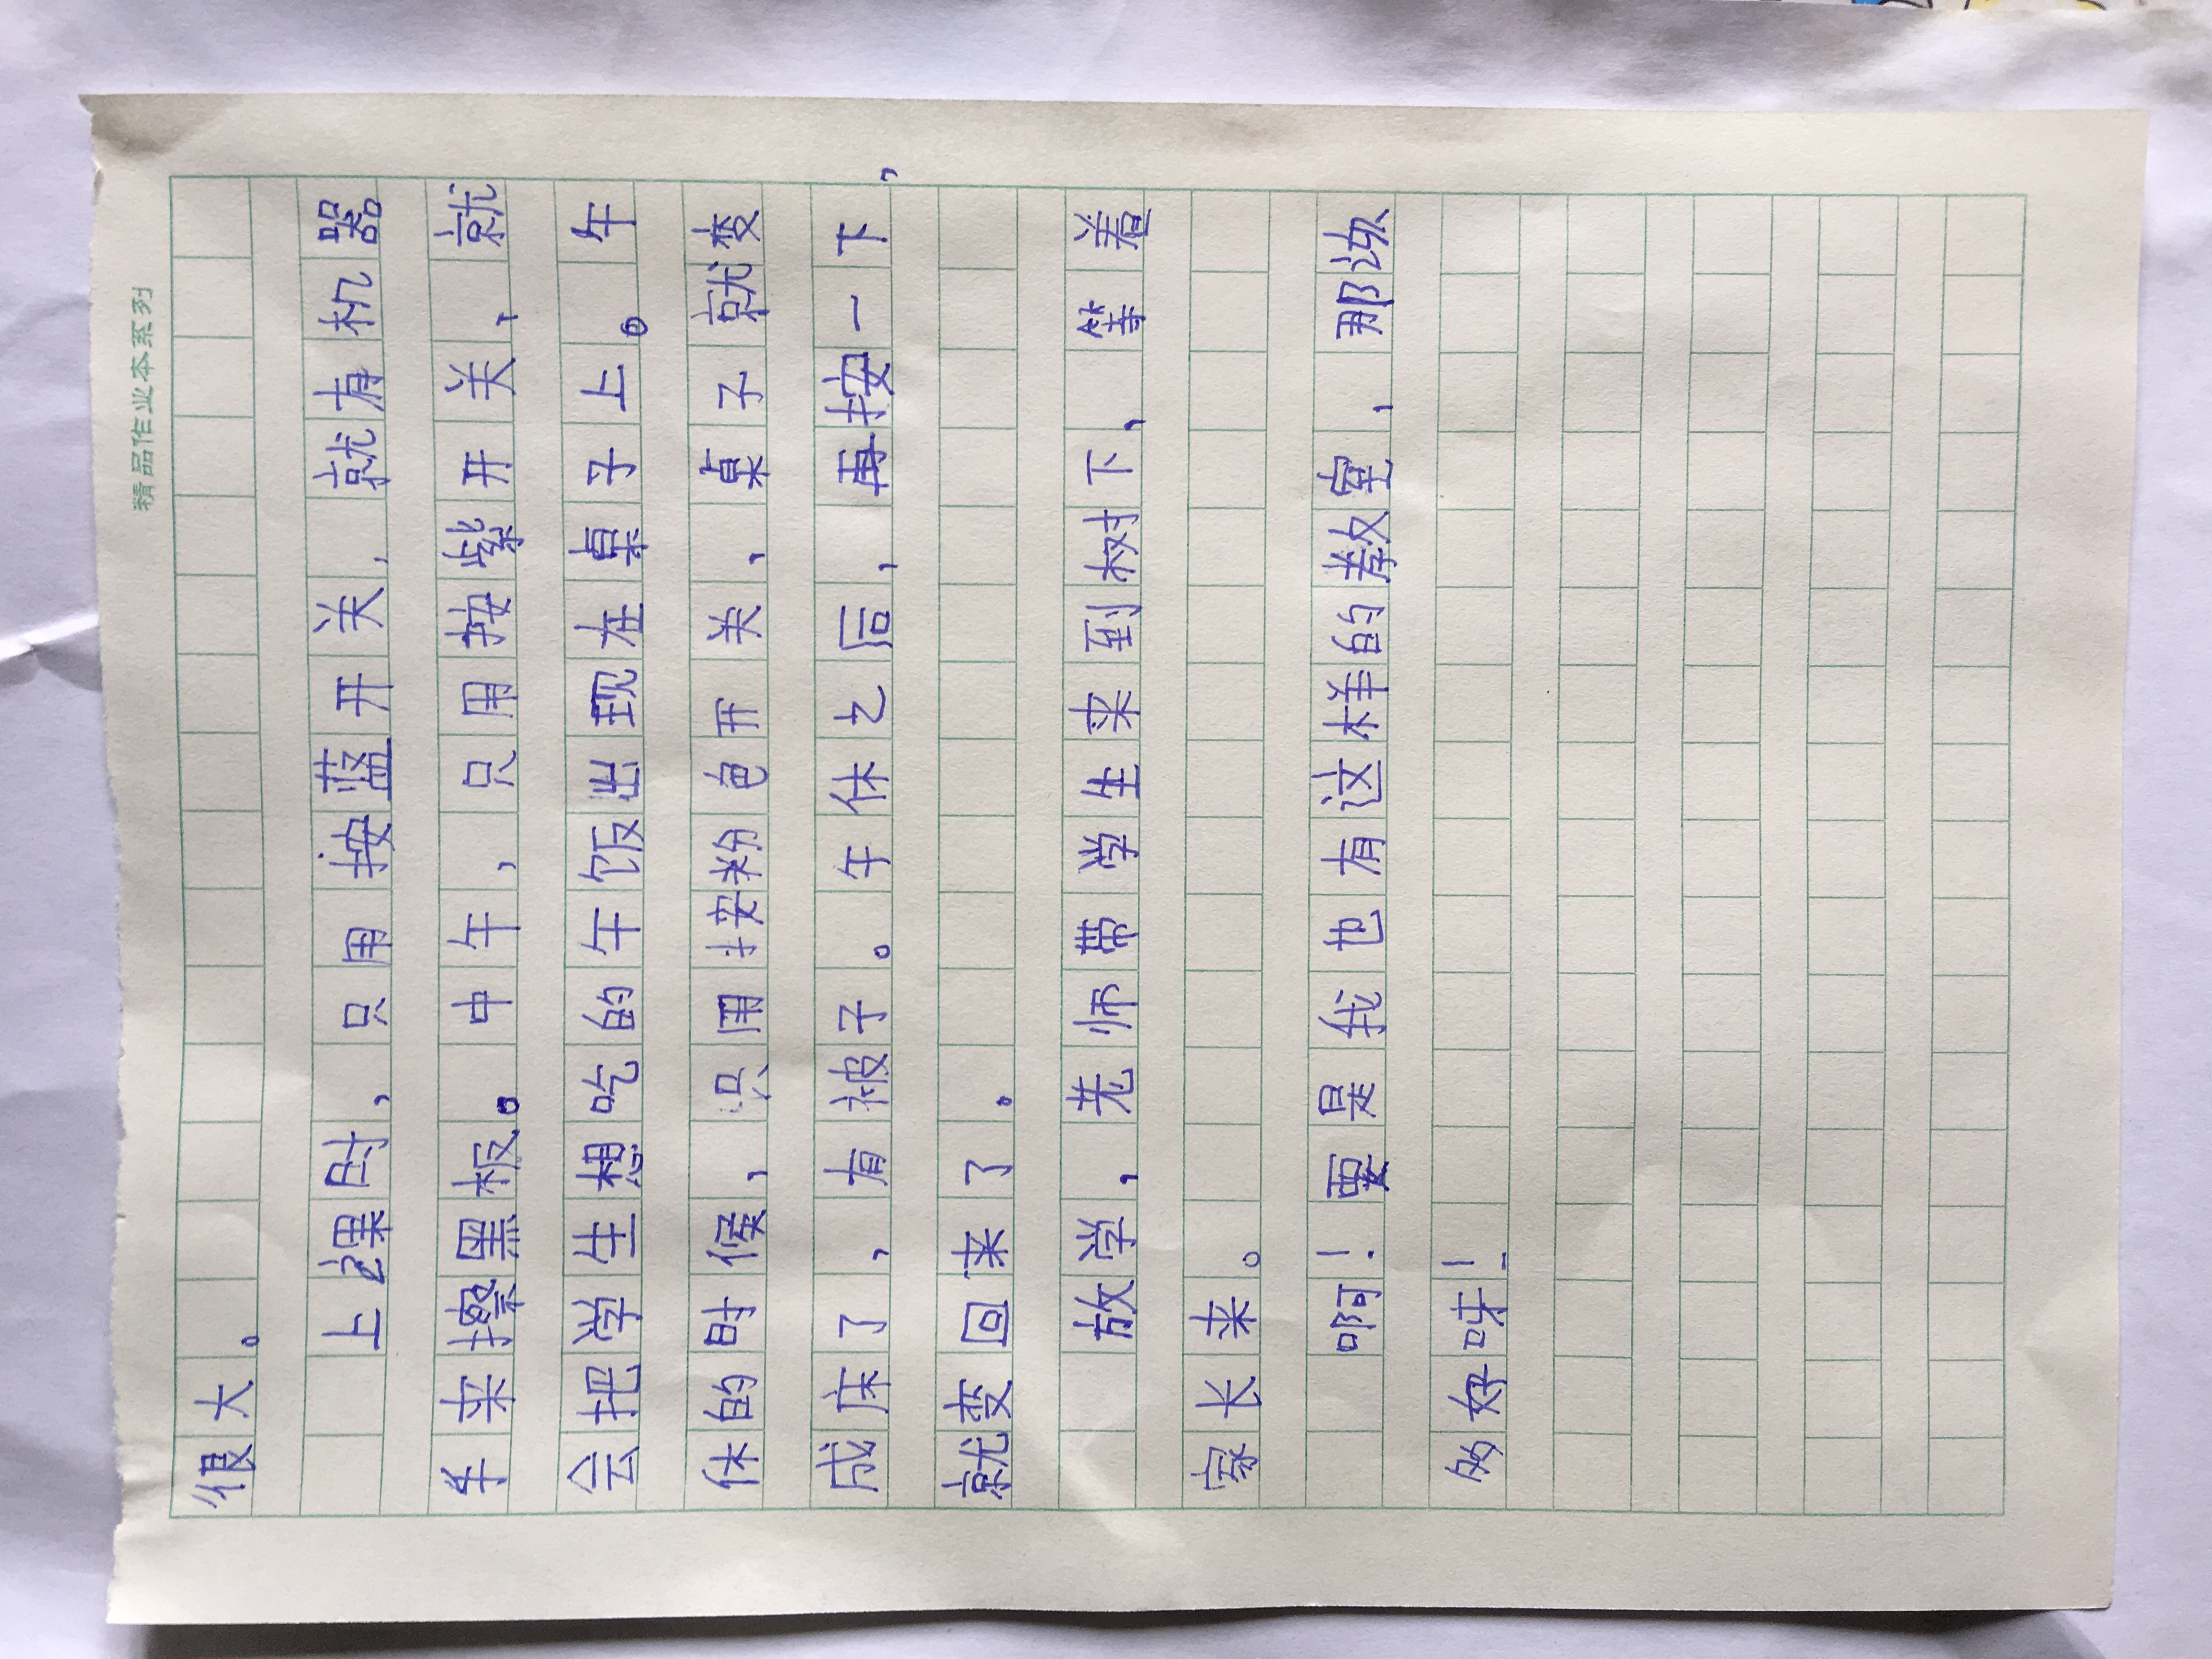 精品作业本系列
很大。
上课时，只用按蓝开关，就有机器
手来擦黑板。中午，只用按紫开关，就
会把学生想吃的午饭出现在桌子上。午
休的时候，只用按粉色开关，桌子就变
成床了，有被子。午休之后，再按一下，
就变回来了。
放学，老师带学生来到树下，等着
家长来。
啊！要是我也有这样的教室，那该
多好呀！